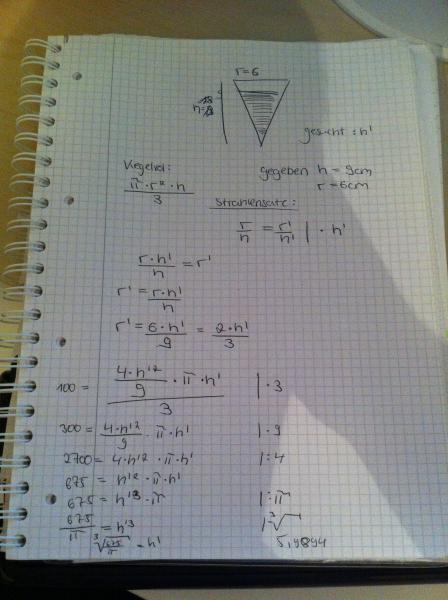 r=6
h=
gesucht: h'
Kegelvol:
π·r²·h / 3
gegeben h = 9cm
r = 6cm
Strahlensatz:
r/h = r'/h' | · h'
r·h'/h = r'
r' = r·h'/h
r' = 6·h'/9 = 2·h'/3
100 = (4·h'²/9 · π·h')/3 | · 3
300 = 4·h'²/9 · π·h' | · 9
2700 = 4·h'² · π·h' | : 4
675 = h'² · π·h'
675 = h'³ · π | : π
675/π = h'³ | ³√
³√(675/π) = h' 5,9894